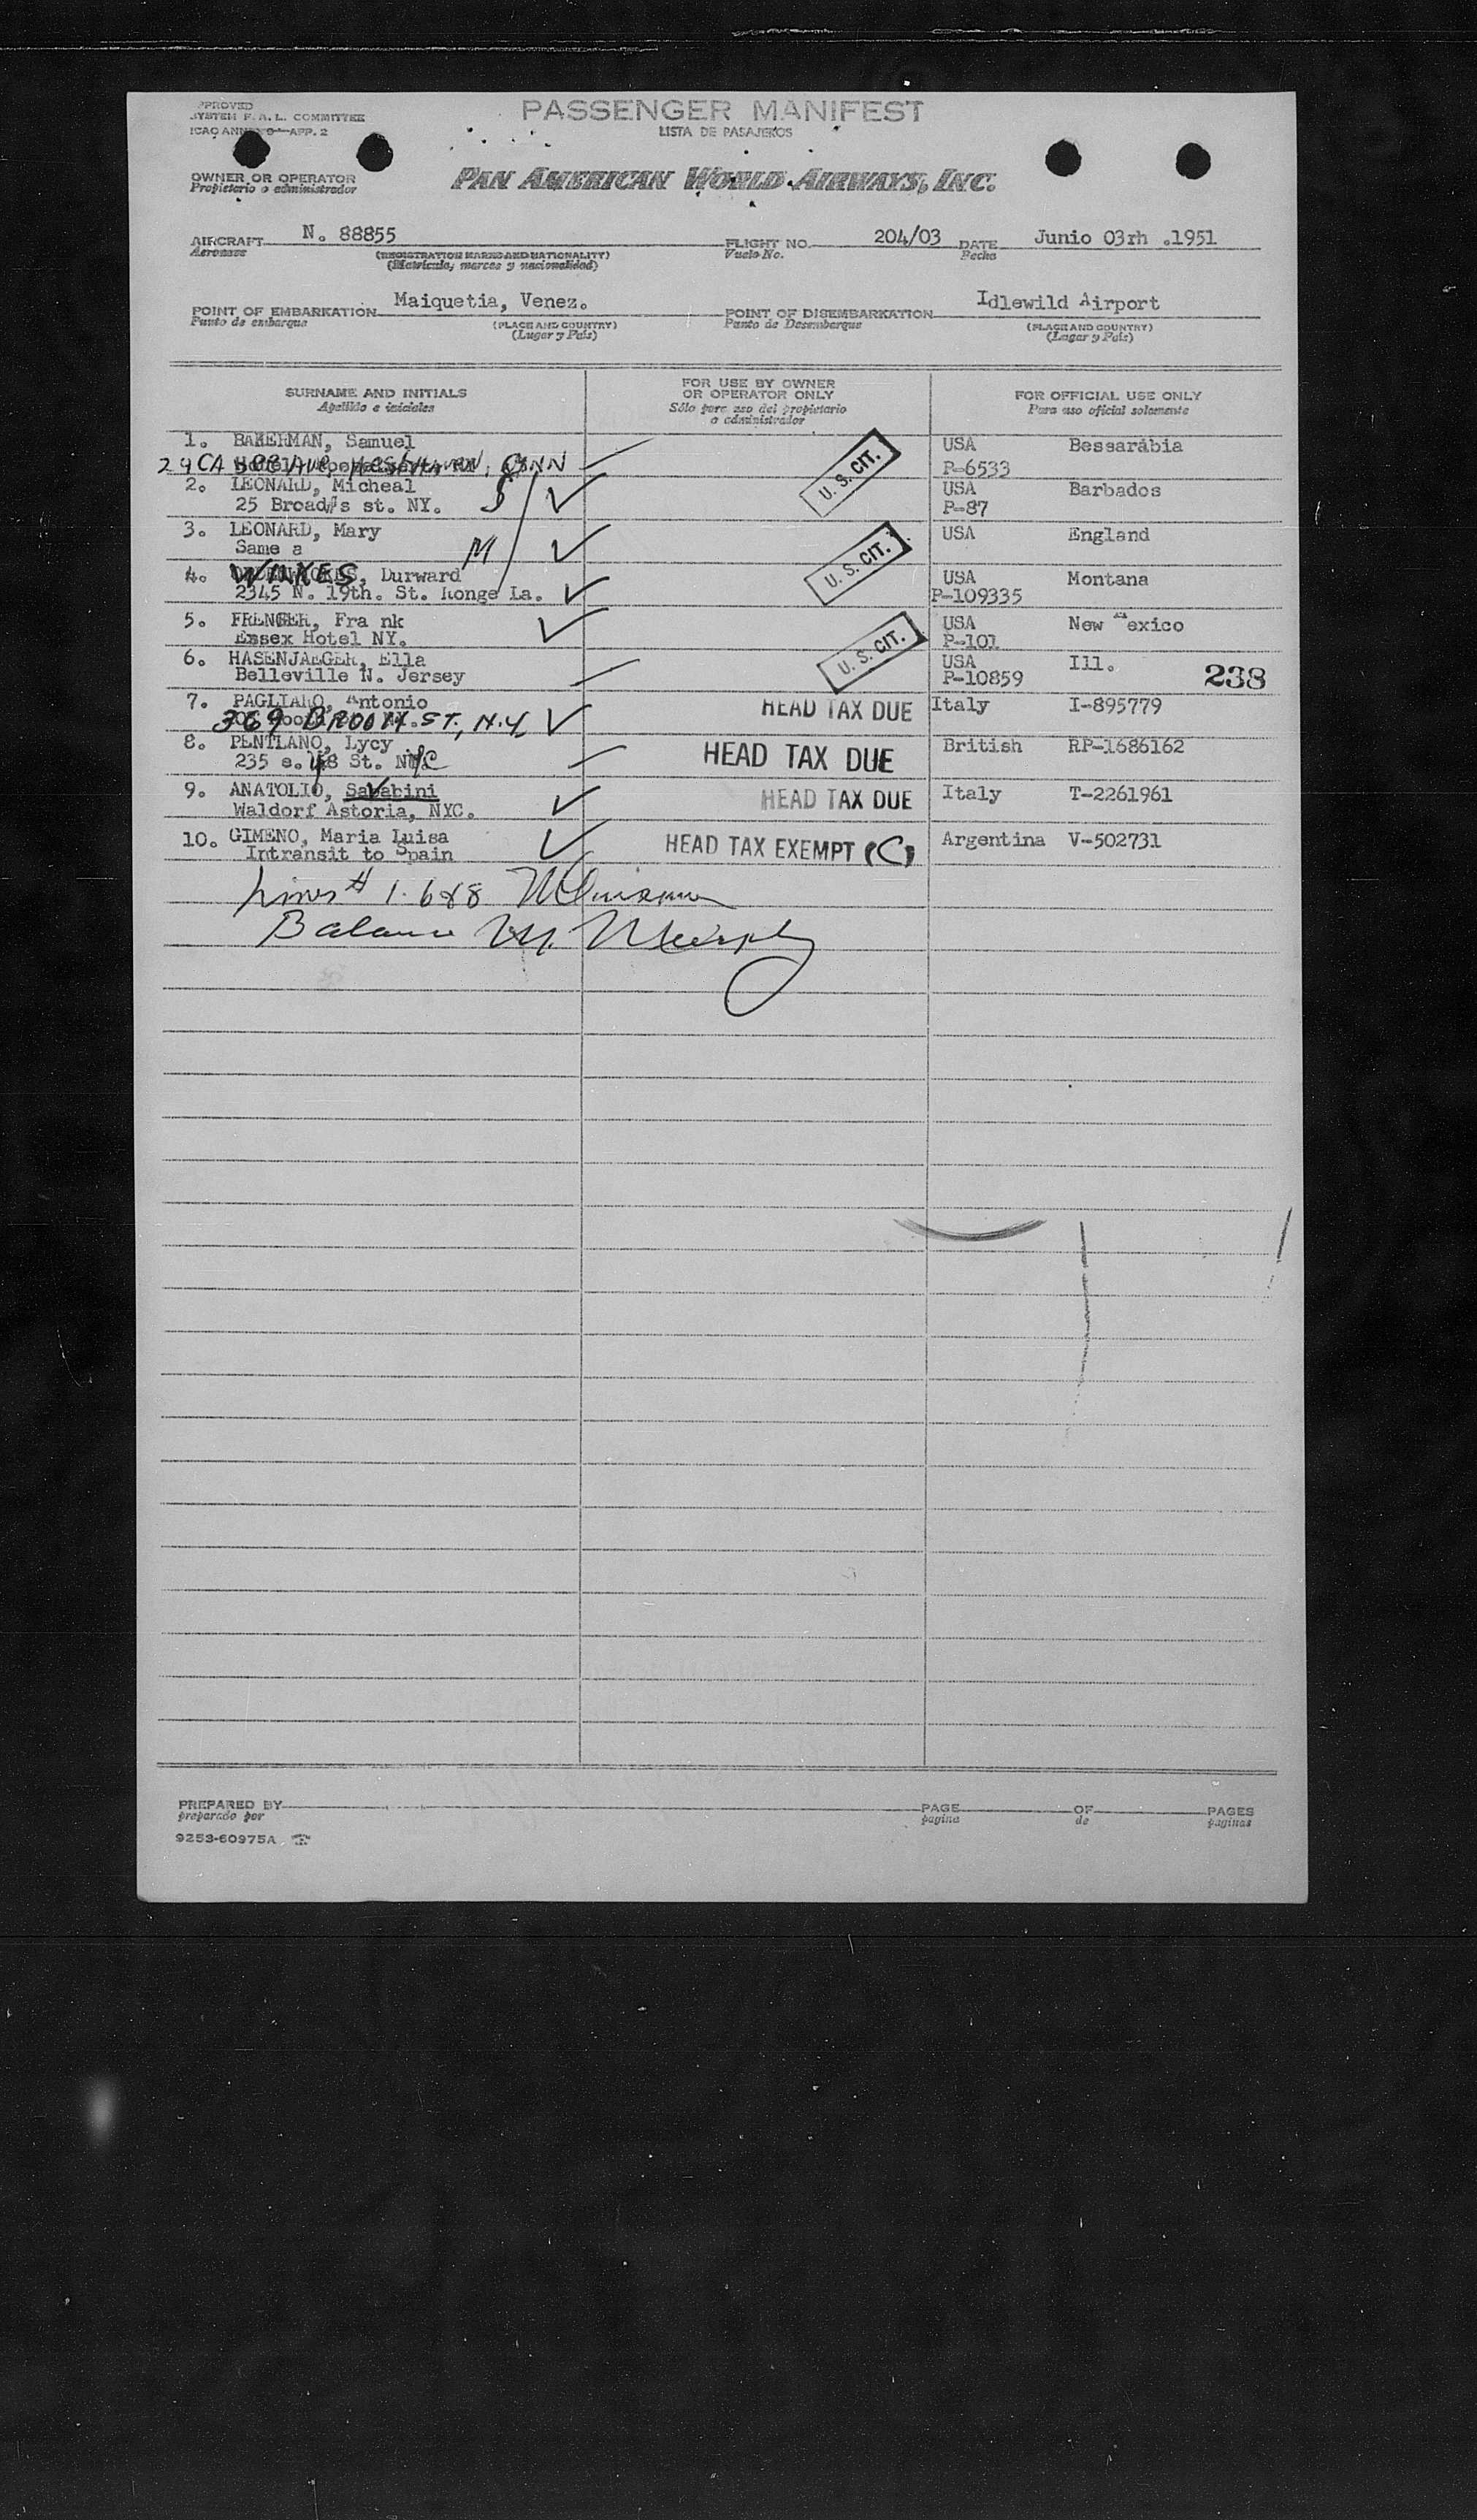 PASSENGER MANIFEST
LISTA DE PASAJEROS
APPROVED
SYSTEM F. A. L. COMMITTEE
ICAO ANNEX 9—APP. 2
OWNER OR OPERATOR
Propietario o administrador
PAN AMERICAN WORLD AIRWAYS, INC.
AIRCRAFT N. 88855 FLIGHT NO. 204/03 DATE Junio 03rh .1951
Aeronave (REGISTRATION MARKS AND NATIONALITY) Vuelo No. Fecha
(Matrícula, marcas y nacionalidad)
POINT OF EMBARKATION Maiquetia, Venez. POINT OF DISEMBARKATION Idlewild Airport
Punto de embarque (PLACE AND COUNTRY) Punto de Desembarque (PLACE AND COUNTRY)
(Lugar y País) (Lugar y País)
SURNAME AND INITIALS FOR USE BY OWNER OR OPERATOR ONLY FOR OFFICIAL USE ONLY
Apellido e iniciales Sólo para uso del propietario o administrador Para uso oficial solamente
1. BAKERMAN, Samuel USA Bessarábia
P-6533
U. S. CIT.
2. LEONARD, Micheal USA Barbados
25 Broad's st. NY. S P-87
3. LEONARD, Mary USA England
Same a M U. S. CIT.
4. WINKES, Durward USA Montana
2345 N. 19th. St. Longe La. P-109335
5. FRENGER, Fra nk USA New Mexico
Essex Hotel NY. P-101
U. S. CIT.
6. HASENJAEGER, Ella USA Ill. 238
Belleville N. Jersey P-10859
7. PAGLIARO, Antonio HEAD TAX DUE Italy I-895779
369 BROOM ST, N.Y.
8. PENTLANO, Lycy HEAD TAX DUE British RP-1686162
235 e. 48 St. NYC
9. ANATOLIO, Sababini HEAD TAX DUE Italy T-2261961
Waldorf Astoria, NYC.
10. GIMENO, Maria Luisa HEAD TAX EXEMPT (C) Argentina V-502731
Intransit to Spain
Lines # 1. 6 & 8
Balance M. Murphy
PREPARED BY PAGE OF PAGES
preparado por pagina de paginas
9253-60975A